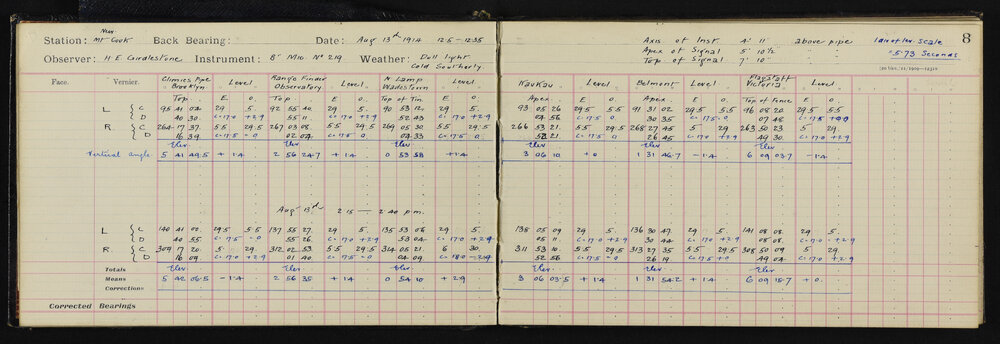 8
New
Station: Mt Cook Back Bearing: Date: Aug 13th 1914 12.5 - 12.35 Axis of Inst. 4' 11" above pipe 1 div of lev. scale
Apex of Signal 5' 10½" = 5.73 Seconds
Observer: H E Girdlestone Instrument: 8" Mic. No 219 Weather: Dull light Cold Southerly Top of Signal 7' 10"
Face. Vernier. Climies Pipe Brooklyn Level Range Finder Observatory Level N Lamp Wadestown Level Kaukau Level Belmont Level Flagstaff Victoria Level
Top E O. Top E O. Top of Tin E O. Apex E O. Apex E O. Top of Fence E O.
L C 95 41 04. 29 5. 92 55 40. 29 5. 90 53 12. 29 5. 93 05 26 29.5 5.5 91 31 02 29.5 5.5 96 08 20 29.5 5.5
D 40 30. c. 17.0 +2.9 55 11 c. 17.0 +2.9 52 43 c. 17.0 +2.9 04 56 c. 17.5 0 30 35 c. 17.5 0 07 48
R. C 264 17 37. 5.5 29.5 267 03 08 5.5 29.5 269 05 30 5.5 29.5 266 53 21. 5.5 29.5 268 27 45 5 29 263 50 23 5 29.
D 16 39 c. 17.5 0 02 04 c. 17.5 0 04 33 c. 17.5 0 52 21 c. 17.5 0 26 45 49 30 c. 17.0 +2.9
Elev Elev Elev Elev Elev Elev
Vertical angle 5 41 49.5 +1.4 2 56 24.7 +1.4 0 53 58 +1.4 3 06 10 +0 1 31 46.7 -1.4 6 09 03.7 -1.4
Aug 13th 2.15 — 2.40 p.m.
L C 140 41 02. 29.5 5.5 137 55 27. 29 5. 135 53 08 29 5. 138 05 09 29 5. 136 30 47 29 5. 141 08 08. 29 5.
D 40 55. c. 17.5 0 55 26. c. 17.0 +2.9 53 04. c. 17.0 +2.9 05 11 c. 17.0 +2.9 30 44 c. 17.0 +2.9 08 08. c. 17.0 +2.9
R. C 309 17 20. 5 29 312 02 53 5.5 29.5 314 05 21 6 30. 311 53 10 5.5 29.5 313 27 35 5.5 29.5 308 50 09 5 29.
D 16 09. c. 17.0 +2.9 01 40. c. 17.5 0 04 09 c. 18.0 -2.9 52 56 c. 17.5 0 26 19 c. 17.5 0 49 04 c. 17.0 +2.9
Totals Elev Elev Elev Elev Elev Elev
Means 5 42 06.5 -1.4 2 56 35 +1.4 0 54 10 +2.9 3 06 03.5 +1.4 1 31 54.2 +1.4 6 09 15.7 +0.
Corrections
Corrected Bearings